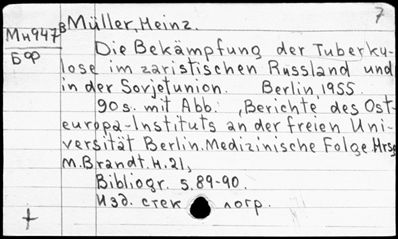 7
В Müller, Heinz.
Ми947
Бф
Die Bekämpfung der Tuberku-
lose im zaristischen Russland und
in der Sovjetunion. Berlin, 1955.
90s. mit Abb. , Berichte des Ost-
europa-Instituts an der freien Uni-
versität Berlin. Medizinische Folge Hrsg
M. Brandt. H. 21,
Bibliogr. s. 89-90.
Изд. стек логр.
+